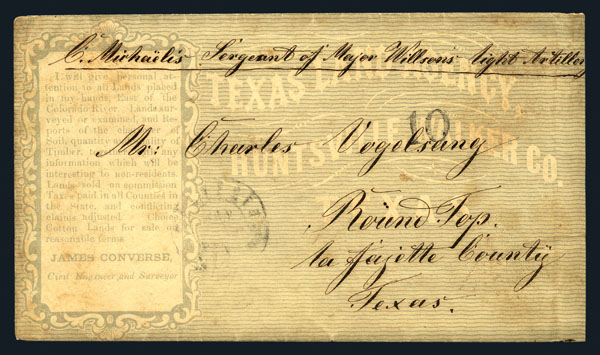 C. Michaëlis Sergeant of Major Willsons light Artillery
I will give personal at-
tention to all Lands placed
in my hands, East of the
Colorado River. Lands sur-
veyed or examined, and Re-
ports of the character of
Soil, quantity and quality of
Timber, or any
information which will be
interesting to non-residents
Lands sold on commission
Taxes paid in all Counties in
the State, and conflicting
claims adjusted. Choice
Cotton Lands for sale on
reasonable terms.
JAMES CONVERSE,
Civil Engineer and Surveyor
TEXAS LAND AGENCY,
HUNTSVILLE CO.
10
Mr: Charles Vogelsang
Roünd Top.
la fajette Coünty
Texas.